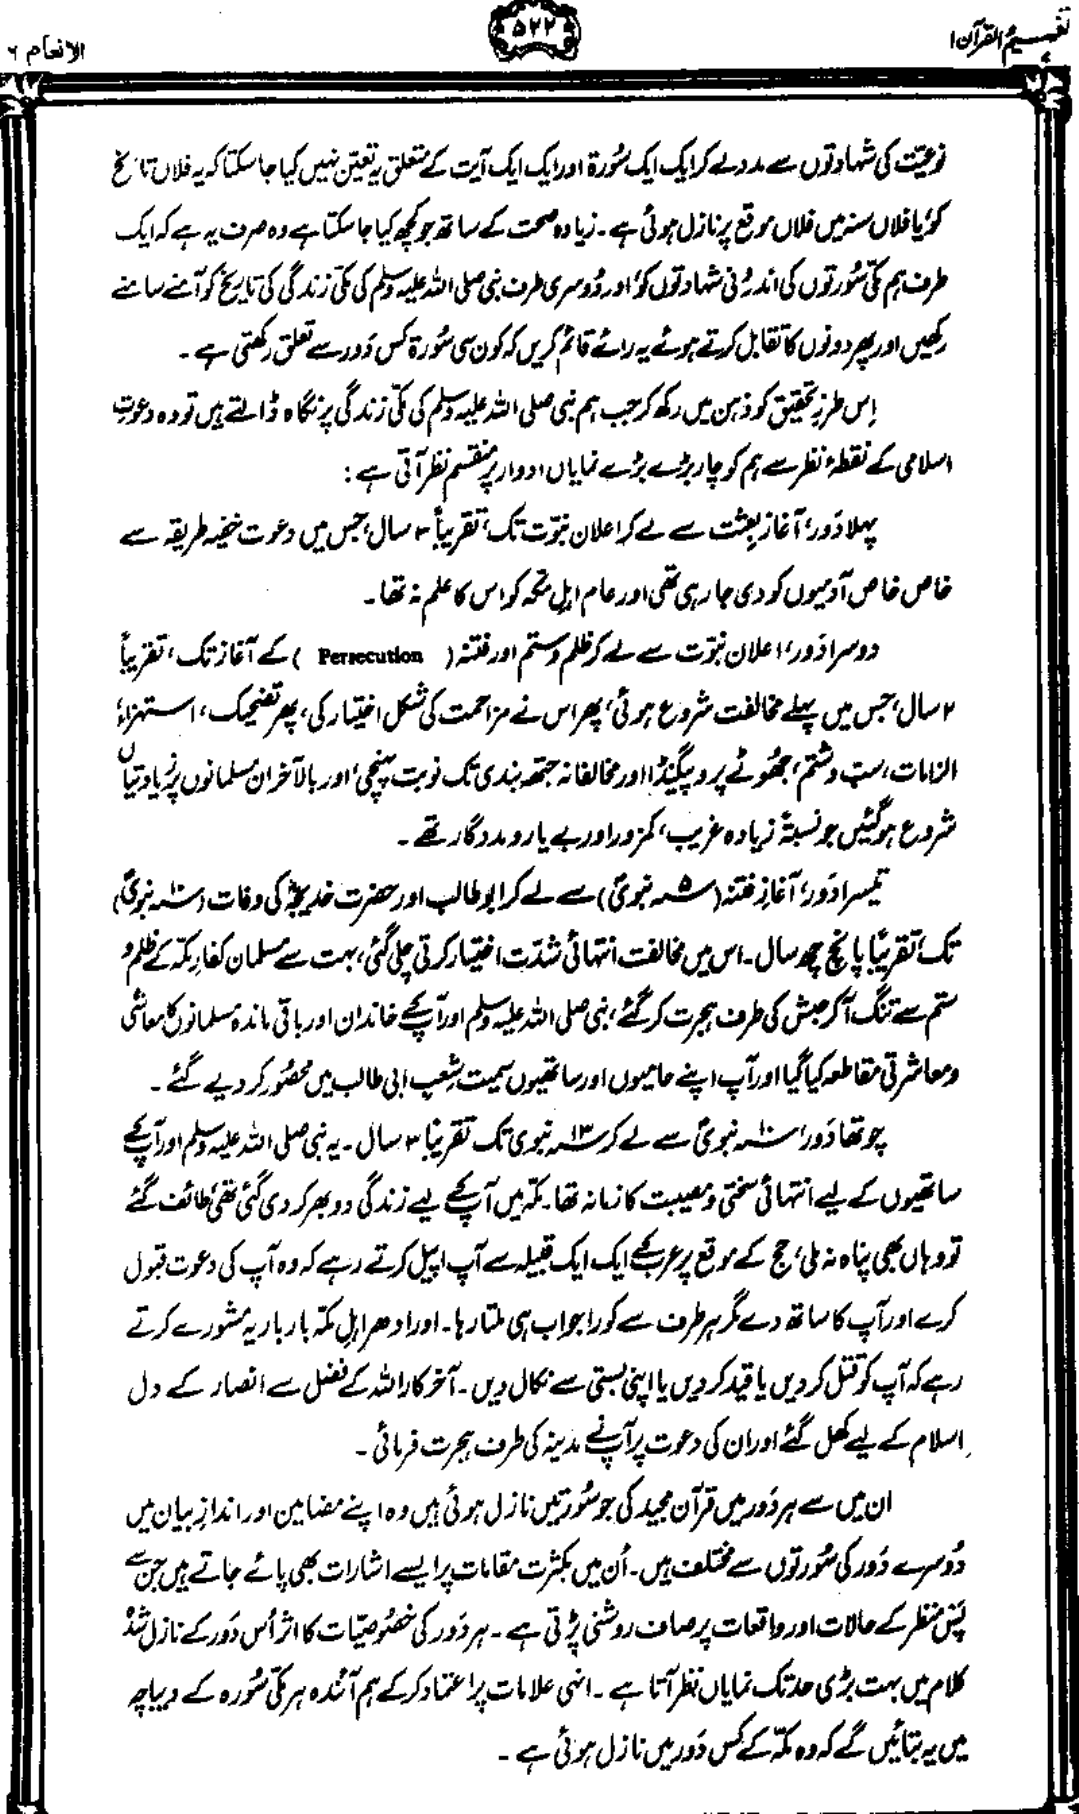 تفہیم القرآن ۱
۵۲۲
الانعام ۶
نوعیّت کی شہادتوں سے مدد لے کر ایک ایک سُورۃ اور ایک ایک آیت کے متعلق یہ تعیّن نہیں کیا جا سکتا کہ یہ فلاں تاریخ
کو، یا فلاں سنہ میں فلاں موقع پر نازل ہوئی ہے۔ زیادہ صحت کے ساتھ جو کچھ کیا جا سکتا ہے وہ صرف یہ ہے کہ ایک
طرف ہم مکّی سُورتوں کی اندرُونی شہادتوں کو، اور دُوسری طرف نبی صلی اللہ علیہ وسلم کی مکّی زندگی کی تاریخ کو آمنے سامنے
رکھیں اور پھر دونوں کا تقابل کرتے ہوئے یہ رائے قائم کریں کہ کون سی سُورۃ کس دَور سے تعلق رکھتی ہے۔
اِس طرزِ تحقیق کو ذہن میں رکھ کر جب ہم نبی صلی اللہ علیہ وسلم کی مکّی زندگی پر نگاہ ڈالتے ہیں تو وہ دعوتِ
اسلامی کے نقطۂ نظر سے ہم کو چار بڑے بڑے نمایاں ادوار پر منقسم نظر آتی ہے:
پہلا دَور، آغازِ بعثت سے لے کر اعلانِ نبوّت تک، تقریباً ۳ سال، جس میں دعوت خفیہ طریقہ سے
خاص خاص آدمیوں کو دی جا رہی تھی اور عام اہلِ مکّہ کو اس کا علم نہ تھا۔
دوسرا دَور، اعلانِ نبوّت سے لے کر ظلم و ستم اور فتنہ (Persecution) کے آغاز تک، تقریباً
۲ سال، جس میں پہلے مخالفت شروع ہوئی، پھر اس نے مزاحمت کی شکل اختیار کی، پھر تضحیک، استہزاء،
الزامات، سبّ و شتم، جھُوٹے پروپیگنڈا اور مخالفانہ جتھہ بندی تک نوبت پہنچی، اور بالآخر ان مسلمانوں پر زیادتیاں
شروع ہو گئیں جو نسبۃً زیادہ غریب، کمزور اور بے یار و مددگار تھے۔
تیسرا دَور، آغازِ فتنہ (سنہ ۵ نبویؐ) سے لے کر ابو طالب اور حضرت خدیجہؓ کی وفات (سنہ ۱۰ نبویؐ)
تک، تقریباً پانچ چھ سال۔ اس میں مخالفت انتہائی شدّت اختیار کرتی چلی گئی، بہت سے مسلمان کفارِ مکّہ کے ظلم و
ستم سے تنگ آ کر حبش کی طرف ہجرت کر گئے، نبی صلی اللہ علیہ وسلم اور آپؐ کے خاندان اور باقی ماندہ مسلمانوں کا معاشی
و معاشرتی مقاطعہ کیا گیا اور آپ اپنے حامیوں اور ساتھیوں سمیت شِعبِ ابی طالب میں محصُور کر دیے گئے۔
چوتھا دَور، سنہ ۱۰ نبویؐ سے لے کر سنہ ۱۳ نبوی تک تقریباً ۳ سال۔ یہ نبی صلی اللہ علیہ وسلم اور آپؐ کے
ساتھیوں کے لیے انتہائی سختی و مصیبت کا زمانہ تھا۔ مکّہ میں آپؐ کے لیے زندگی دوبھر کر دی گئی تھی، طائف گئے
تو وہاں بھی پناہ نہ ملی، حج کے موقع پر عرب کے ایک ایک قبیلہ سے آپ اپیل کرتے رہے کہ وہ آپ کی دعوت قبول
کرے اور آپ کا ساتھ دے مگر ہر طرف سے کورا جواب ہی ملتا رہا۔ اور ادھر اہلِ مکّہ بار بار یہ مشورے کرتے
رہے کہ آپ کو قتل کر دیں یا قید کر دیں یا اپنی بستی سے نکال دیں۔ آخرکار اللہ کے فضل سے انصار کے دل
اسلام کے لیے کھل گئے اور ان کی دعوت پر آپؐ نے مدینہ کی طرف ہجرت فرمائی۔
ان میں سے ہر دَور میں قرآن مجید کی جو سُورتیں نازل ہوئی ہیں وہ اپنے مضامین اور اندازِ بیان میں
دُوسرے دَور کی سُورتوں سے مختلف ہیں۔ اُن میں بکثرت مقامات پر ایسے اشارات بھی پائے جاتے ہیں جن سے
پَس منظر کے حالات اور واقعات پر صاف روشنی پڑتی ہے۔ ہر دَور کی خصُوصیّات کا اثر اُس دَور کے نازل شدہ
کلام میں بہت بڑی حد تک نمایاں نظر آتا ہے۔ انہی علامات پر اعتماد کر کے ہم آئندہ ہر مکّی سُورہ کے دیباچہ
میں یہ بتائیں گے کہ وہ مکّہ کے کس دَور میں نازل ہوئی ہے۔